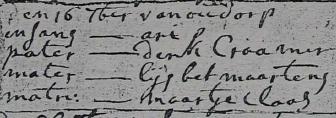 den 16 7ber van oudorp
infans — arie
pater — derk Craamer
mater — lijsbet maartens
matri: — maartje Claas